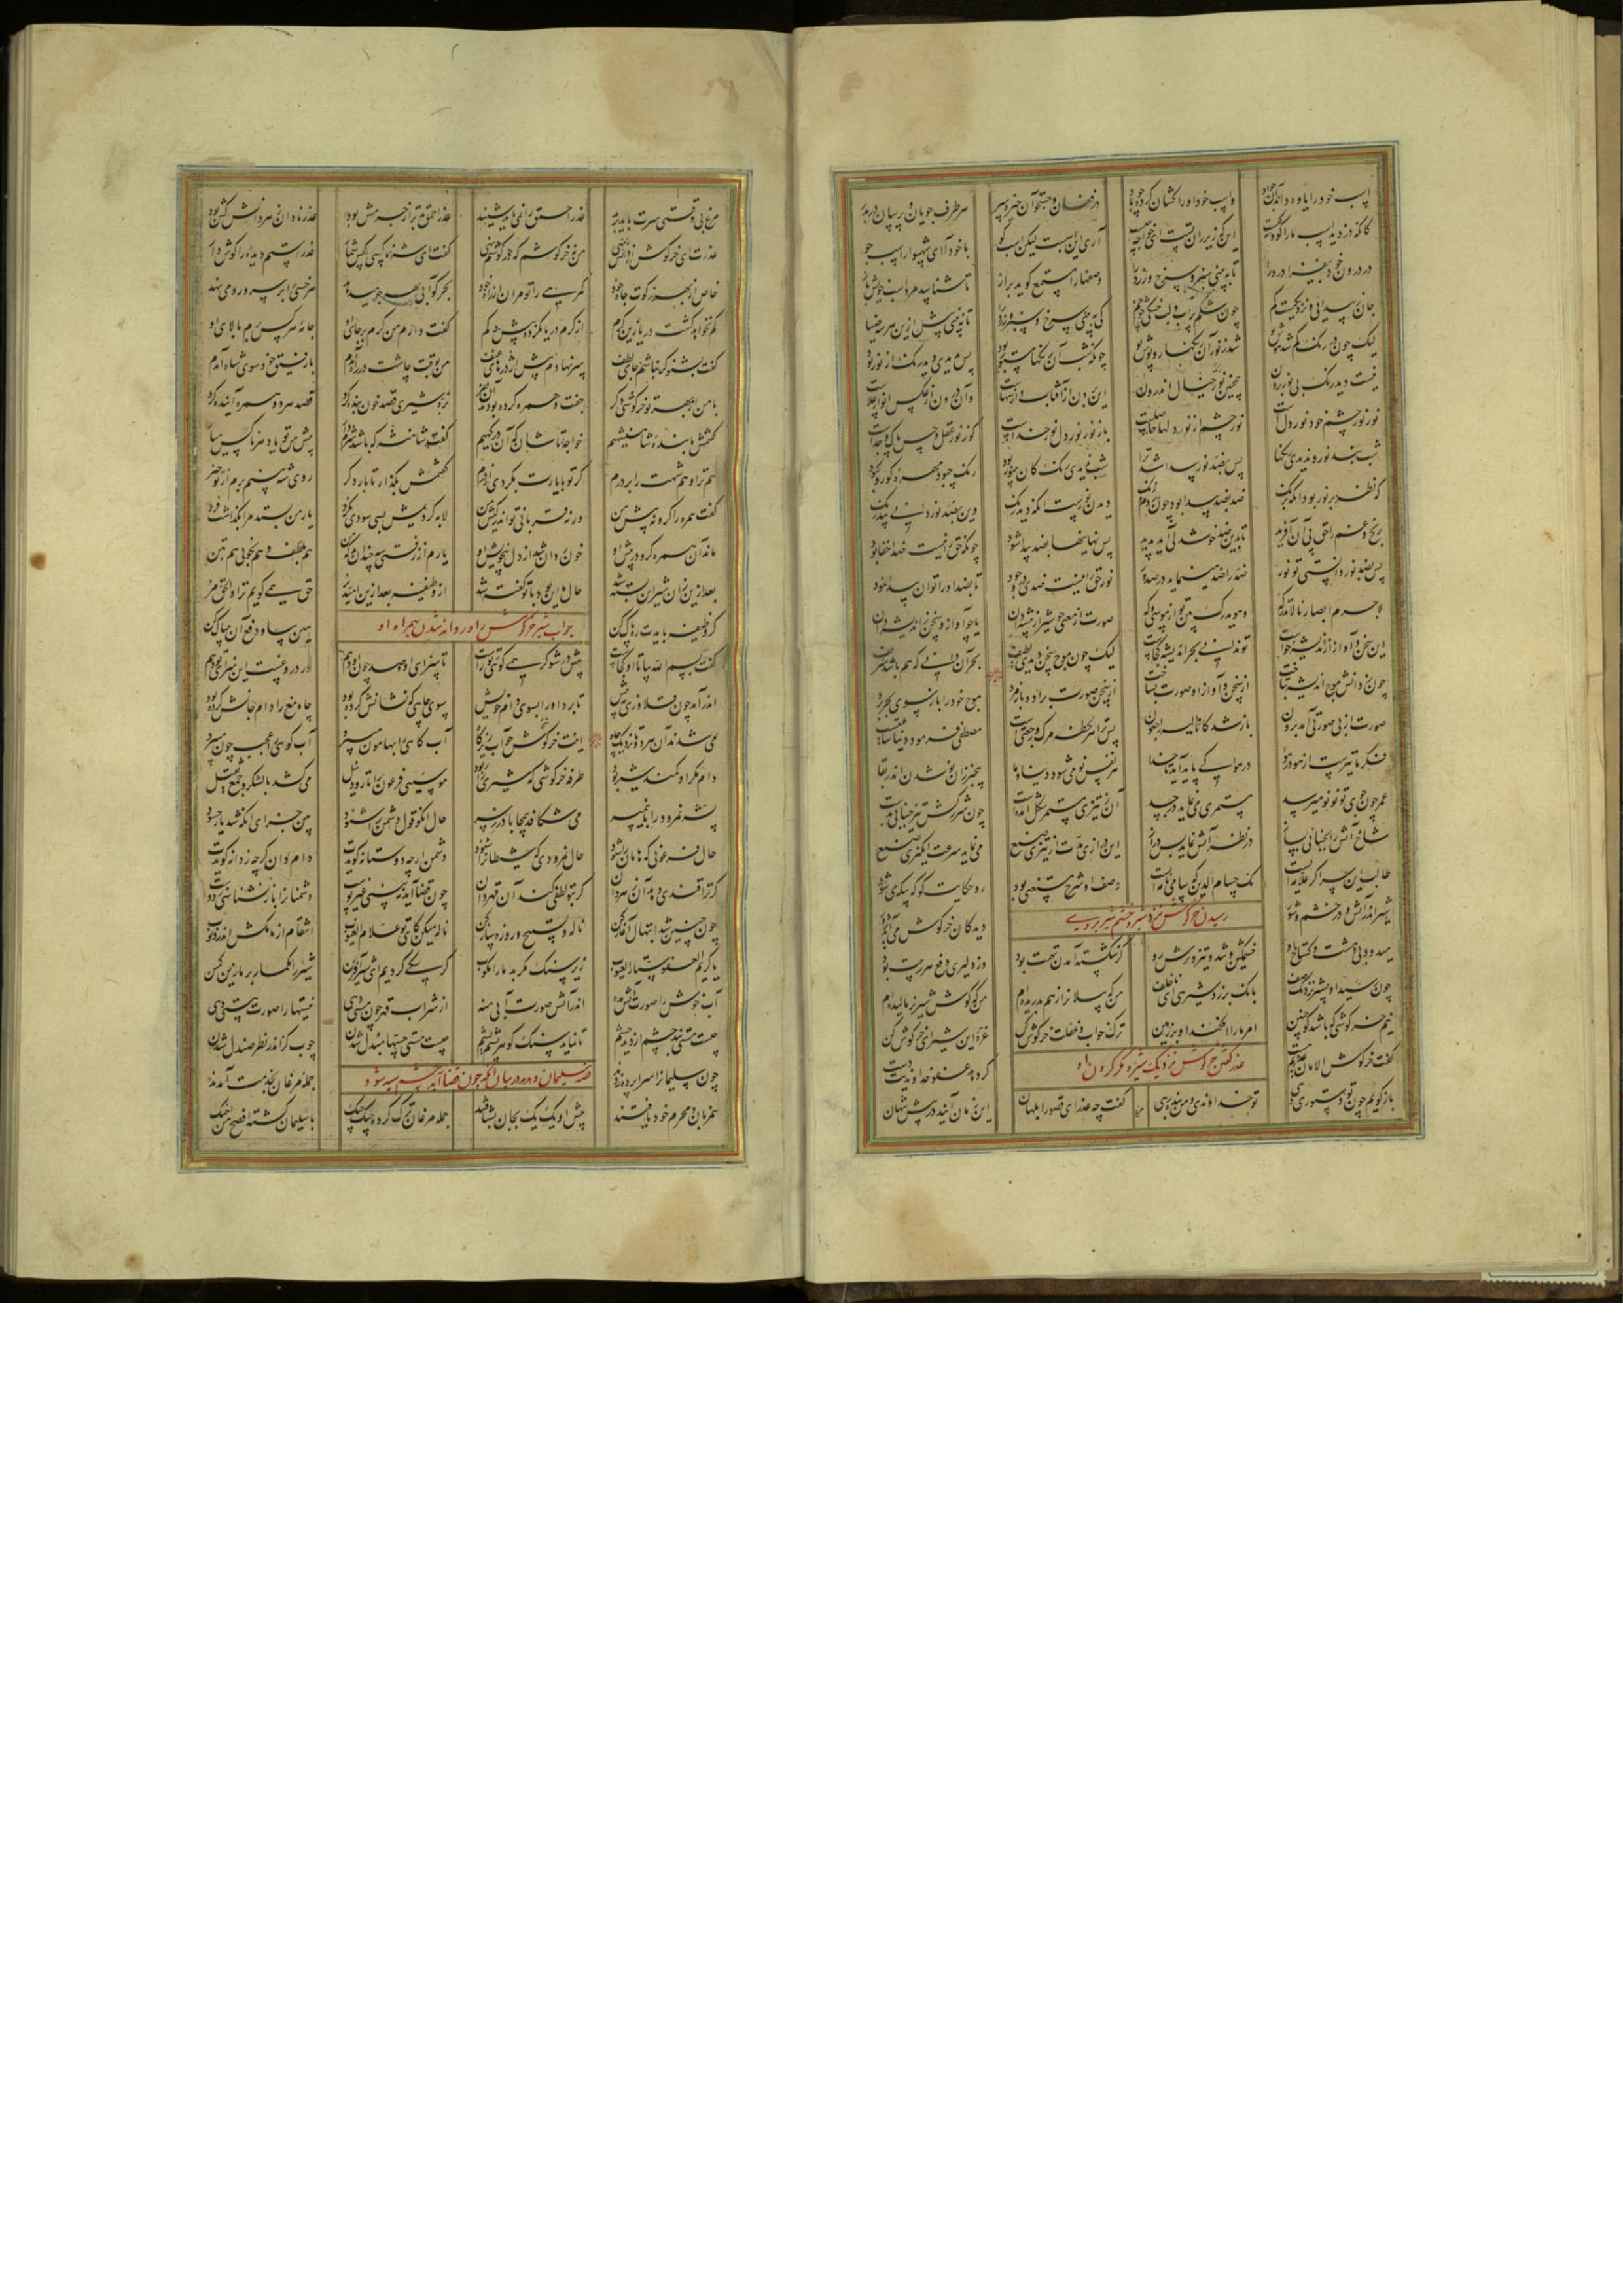 اسپ خود را یاوه داند آن جواد واسپ خود او را کشان کرده چو باد در فغان و جستجو آن خیره سر هر طرف جویان و پرسان در بدر
کانکه دزدید اسپ ما را کو و کیست این که زیر ران تست ای خواجه چیست آری این اسبست لیکن اسب کو با خود آ ای شهسوار اسب جو
در درون خود بیفزا درد را تا ببینی سبز و سرخ و زرد را وصفها را مستمع گوید براز تا شناسد مرد اسب خویش باز
جان ز پیدایی و نزدیکیست گم چون شکم پر آب و لب خشکی چو خم کی ببینی سرخ و سبز و تا نبینی پیش ازین هر سه ضیا
لیک چون در رنگ گم شد هوش تو شد ز نور آن رنگها روپوش تو چونکه شب آن رنگها مستور بود پس بدیدی دید رنگ از نور بود
نیست دید رنگ بی نور برون همچنین نور خیال اندرون این برون از آفتاب و از سها و آن درون از عکس انوار علاست
نور نور چشم خود نور دل است نور چشم از نور دلها حاصلست باز نور نور دل نور خداست کو ز نور عقل و حس پاک و جداست
شب نبد نور و ندیدی رنگها پس بضد نور پیدا شد ترا شب ندیدی رنگ کان بی نور بود رنگ چبود مهره کور و کبود
که نظر بر نور بود آنگه برنگ ضد بضد پیدا بود چون روم و زنگ دیدن نورست آنگه دید رنگ وین بضد نور دانی بی درنگ
رنج و غم را حق پی آن آفرید تا بدین ضد خوش دلی آید پدید پس نهانیها بضد پیدا شود چونکه حق را نیست ضد خفا بود
پس بضد نور دانستی تو نور ضد ضد را مینماید در صدور نور حق را نیست ضدی در وجود تا بضد او را توان پیدا نمود
لاجرم ابصار نا لا تدرکه وهو یدرک بین تو از موسی و که صورت از معنی چو شیر از بیشه دان یا چو آواز و سخن ز اندیشه دان
این سخن و آواز از اندیشه خاست تو ندانی بحر اندیشه کجاست لیک چون موج سخن دیدی لطیف بحر آن دانی که هم باشد شریف
چون ز دانش موج اندیشه بتاخت از سخن و آواز او صورت بساخت از سخن صورت بزاد و باز مرد موج خود را باز سوی بحر برد
صورت از بی صورتی آمد برون باز شد کانا الیه راجعون پس ترا هر لحظه مرگ و رجعتیست مصطفی فرمود دنیا ساعتیست
فکر ما تیریست از هو در هوا در هوا کی پاید آید تا خدا هر نفس نو میشود دنیا و ما بیخبر زان نو شدن اندر بقا
عمر چون جوی نو نو میرسد مستمری می نماید در جسد آن ز تیزی مستمر شکل آمدست چون شرر کش تیز جنبانی بدست
شاخ آتش را بجنبانی بساز در نظر آتش نماید بس دراز این درازی مدت از تیزی صنع می نماید سرعت انگیزی صنع
طالب این سر اگر علامه ایست نک حسام الدین که سامی نامه ایست وصف او شرح مستغنی بود رو حکایت کو که بیگه می شود
رسیدن خرگوش نزد شیر و خشم شیر بر وی
شیر اندر آتش و در خشم و شور دید کان خرگوش می آید ز دور
میدود بی دهشت و گستاخ او خشمگین و تند و تیز و ترش رو کز شکسته آمدن تهمت بود وز دلیری دفع هر ریبت بود
چون رسید او پیشتر نزدیک صف بانگ بر زد شیر هی ای ناخلف من که پیلان را ز هم بدریده ام من که گوش شیر نر مالیده ام
نیم خرگوشی که باشد کو چنین امر ما را افکند او بر زمین ترک خواب و غفلت خرگوش کن غره این شیر ای خر گوش کن
عذر گفتن خرگوش نزدیک شیر و مکر کردن او
گفت خرگوش الامان عذریم هست گر دهد عفو خداوندیت دست
باز گویم چون تو دستوری دهی تو خداوندی و من بنده رهی گفت چه عذر ای قصور ابلهان این زمان آیند در پیش شهان
مرغ بی وقتی سرت باید برید عذر احمق را نمی باید شنید عذر احمق بتر از جرمش بود عذر نادان زهر دانش کش بود
عذرت ای خرگوش از دانش تهی من نه خرگوشم که در گوشم نهی گفت ای شه ناکسی را کس شمار عذر استم دیده را گوش دار
خاص از بهر زکوت جاه خود گمرهی را تو مران از راه خود بحر کو آبی بهر جو میدهد هر خسی را بر سر و رو می نهد
کم نخواهد گشت دریا زین کرم از کرم دریا نگردد بیش و کم گفت دارم من کرم بر جای او جامه هر کس برم بالای او
گفت بشنو گر نباشم جای لطف سر نهادم پیش اژدرهای عنف من بوقت چاشت در راه آمدم با رفیق خود سوی شاه آمدم
با من از بهر تو خرگوشی دگر جفت و همره کرده بودند آن نفر شیری قصد خون بنده کرد قصد هر دو همره آینده کرد
گفتمش ما بنده شاهنشهیم خواجه تاشان که آن درگهیم گفت شاهنشه که باشد شرم دار پیش من تو یاد هر ناکس میار
هم ترا و هم شهت را بر درم گر تو با یارت بگردی از درم گفتمش بگذار تا بار دگر روی شه بینم برم از تو خبر
گفت همره را گرو نه پیش من ورنه قربانی تو اندر کیش من لابه کردیمش بسی سودی نکرد یار من بستد مرا بگذاشت فرد
ماند آن همره گرو در پیش او خون روان شد از دل بیخویش او یارم از زفتی سه چندان بد که من هم بلطف و هم بخوبی هم بتن
بعد ازین زان شیر این ره بسته شد حال ما این بود با تو گفته شد از وظیفه بعد ازین امید بر حق همی گویم ترا و الحق مر
گر وظیفه بایدت ره پاک کن هین بیا و دفع آن بیباک کن
جواب شیر خرگوش را و روانه شدن همراه او
گفت بسم الله بیا تا او کجاست پیش در شو گر همی گویی تو راست تا سزای او و صد چون او دهم ور دروغست این سزای تو دهم
اندر آمد چون قلاوزی به پیش تا برد او را بسوی دام خویش سوی چاهی کو نشانش کرده بود چاه مغ را دام جانش کرده بود
می شدند آن هر دو تا نزدیک چاه اینت خرگوشی چو آب زیر کاه آب کاهی را بهامون میبرد آب کوهی را عجب چون میبرد
دام مکر او کمند شیر بود طرفه خرگوشی که شیری را ربود موسیی فرعون را تا رود نیل می کشد با لشکر و جمع ثقیل
پشه نمرود را با نیم پر می شکافد بیمحابا درز سر حال آنکو قول دشمن را شنود بین جزای آنکه شد یار حسود
حال فرعونی که هامان را شنود حال نمرودی که شیطان را ستود دشمن ار چه دوستانه گویدت دام دان گر چه ز دانه گویدت
گر ترا قندی دهد آن زهر دان گر بتو لطفی کند آن قهر دان چون قضا آید نبینی غیر پوست دشمنان را باز نشناسی ز دوست
چون چنین شد ابتهال آغاز کن ناله و تسبیح و روزه ساز کن ناله میکن کای تو علام الغیوب انتقام از ما مکش اندر ذنوب
یا کریم العفو ستار العیوب زیر سنگ مکر بد ما را مکوب گر سگی کردیم ای شیر آفرین شیر را مگمار بر ما زین کمین
آب خوش را صورت آتش مده اندر آتش صورت آبی منه از شراب قهر چون مستی دهی نیستها را صورت هستی دهی
چیست مستی بند چشم از دید چشم تا نماید سنگ گوهر پشم یشم چیست مستی حسها مبدل شدن چوب گز اندر نظر صندل شدن
قصه سلیمان و هدهد در بیان آنکه چون قضا آید چشم بسته شود
چون سلیمان را سراپرده زدند جمله مرغانش بخدمت آمدند
همزبان و محرم خود یافتند پیش او یک یک بجان بشتافتند جمله مرغان ترک کرده چیک چیک با سلیمان گشته افصح من اخیک